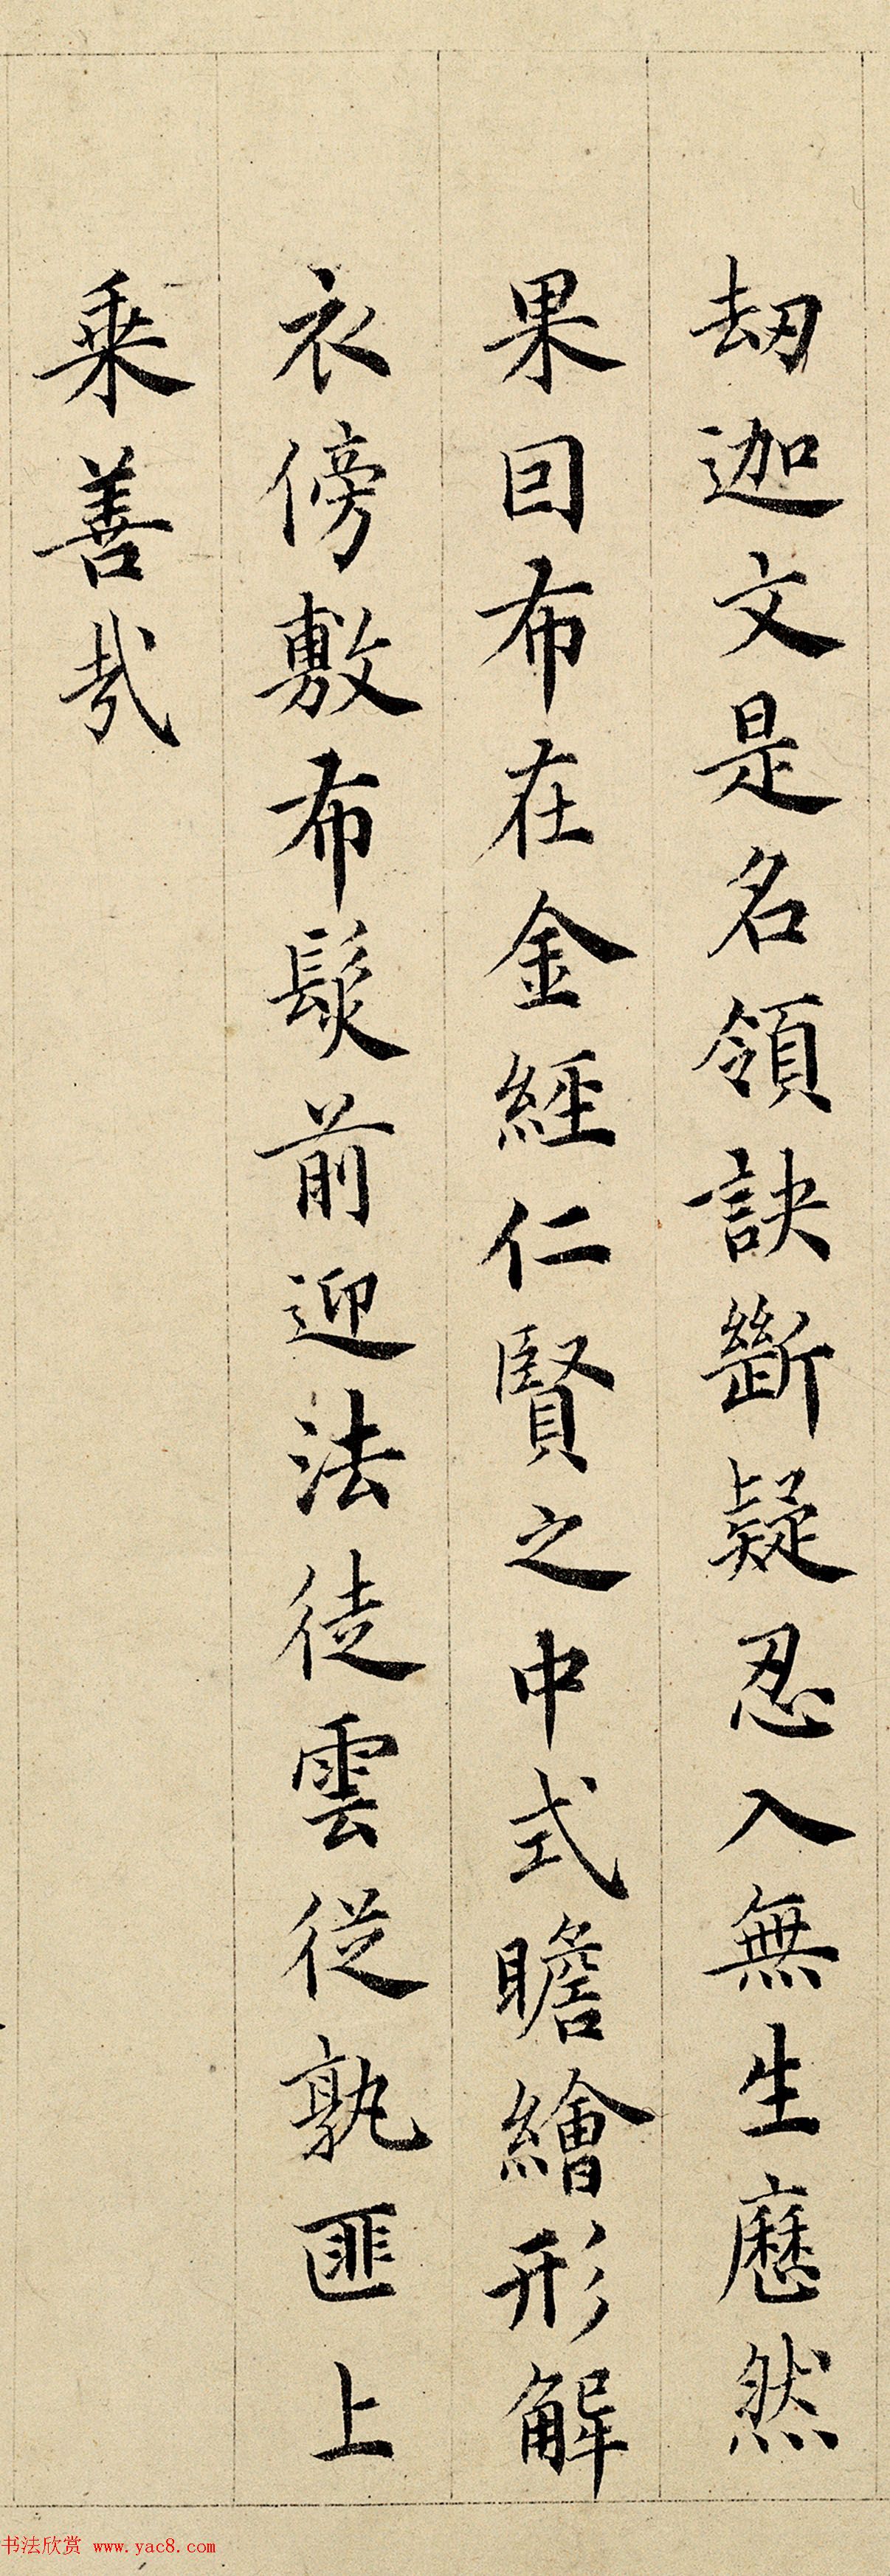 劫迦文是名領訣斷疑忍入無生歷然
果因布在金經仁賢之中式瞻繪形解
衣傍敷布髮前迎法徒雲從孰匪上
乘善哉
书法欣赏 www.yac8.com